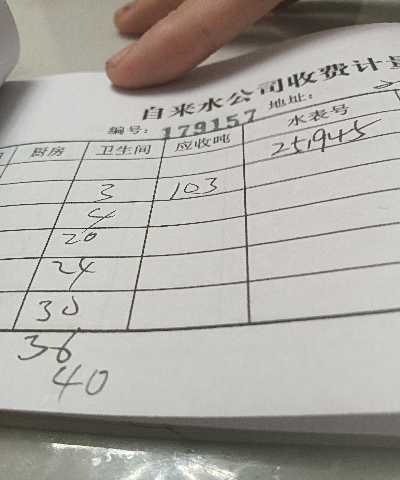 自来水公司收费计
编号: 179157 地址:
厨房 卫生间 应收吨 水表号
251945
3 103
4
20
24
30
36
40